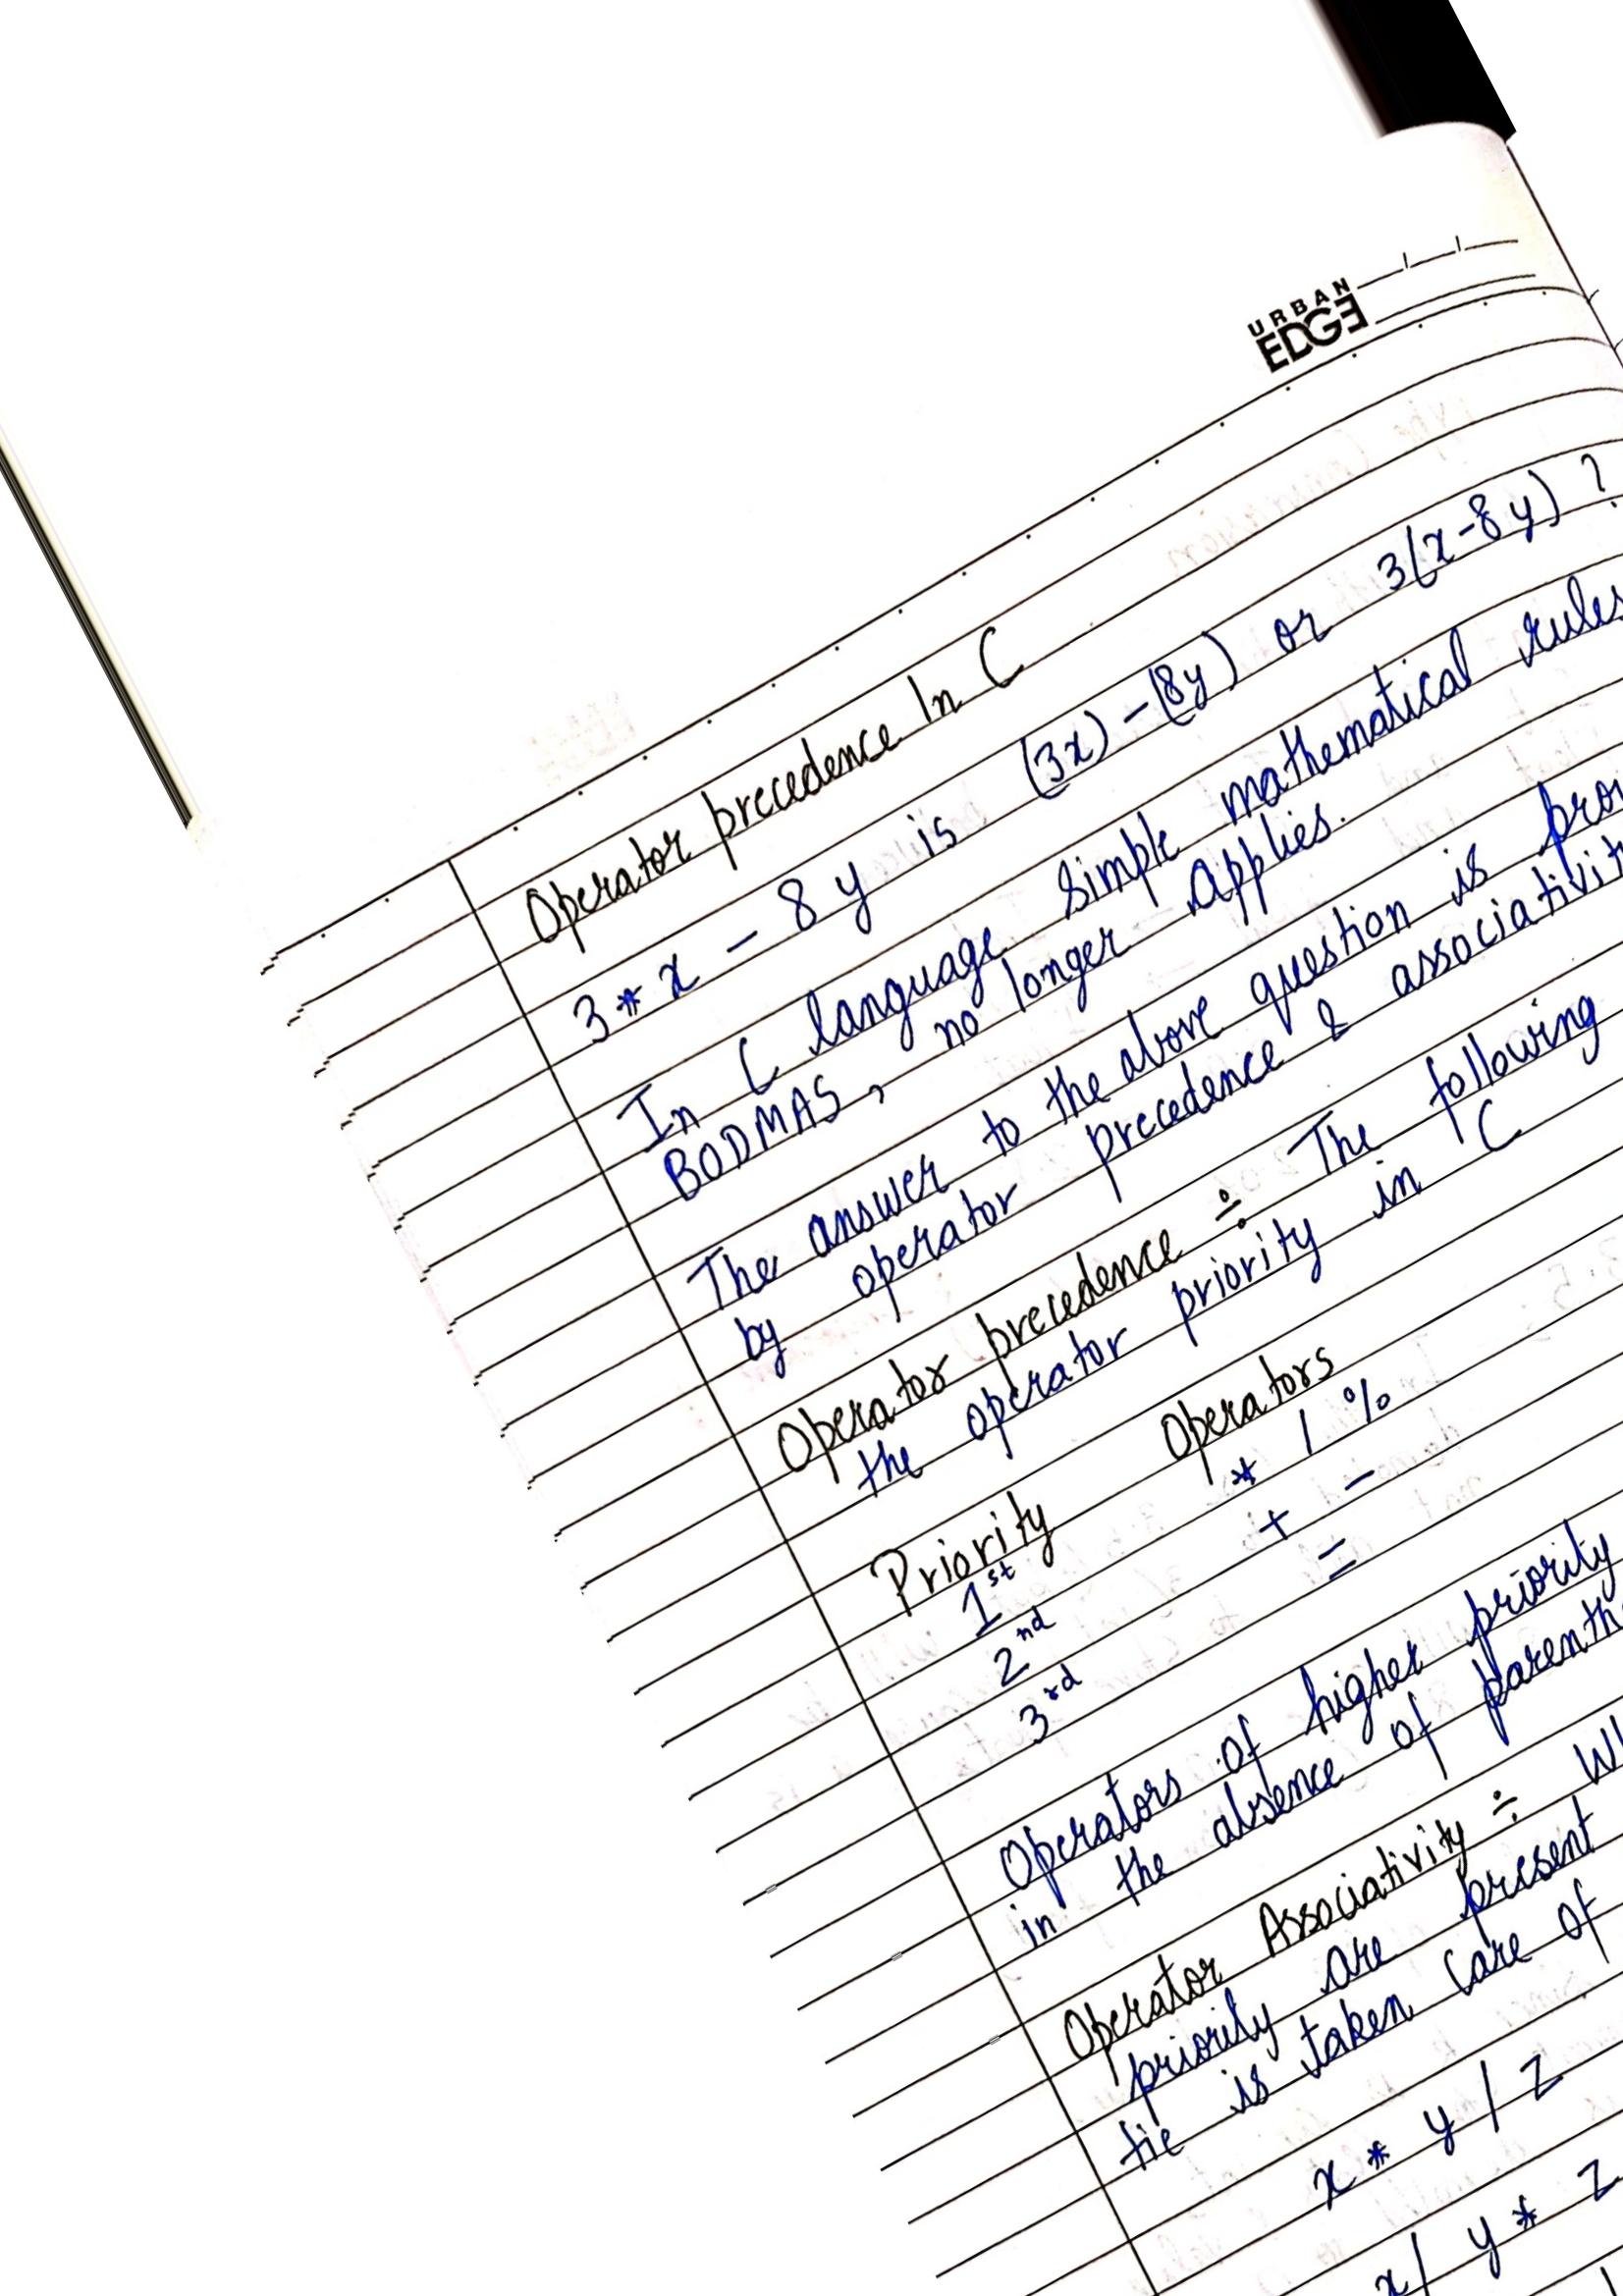 URBAN
EDGE
Operator precedence In C
3 * x - 8 y is (3x) - (8y) or 3(x-8y) ?
In C language simple mathematical rules
BODMAS, no longer applies.
The answer to the above question is
by operator precedence & associativit
Operator precedence ÷ The following
the operator priority in C
Priority Operators
1st * / %
2nd + -
3rd =
Operators of higher priority
in the absence of parenth
Operator Associativity ÷
priority are present
tie is taken care of
x * y / z
x / y * z